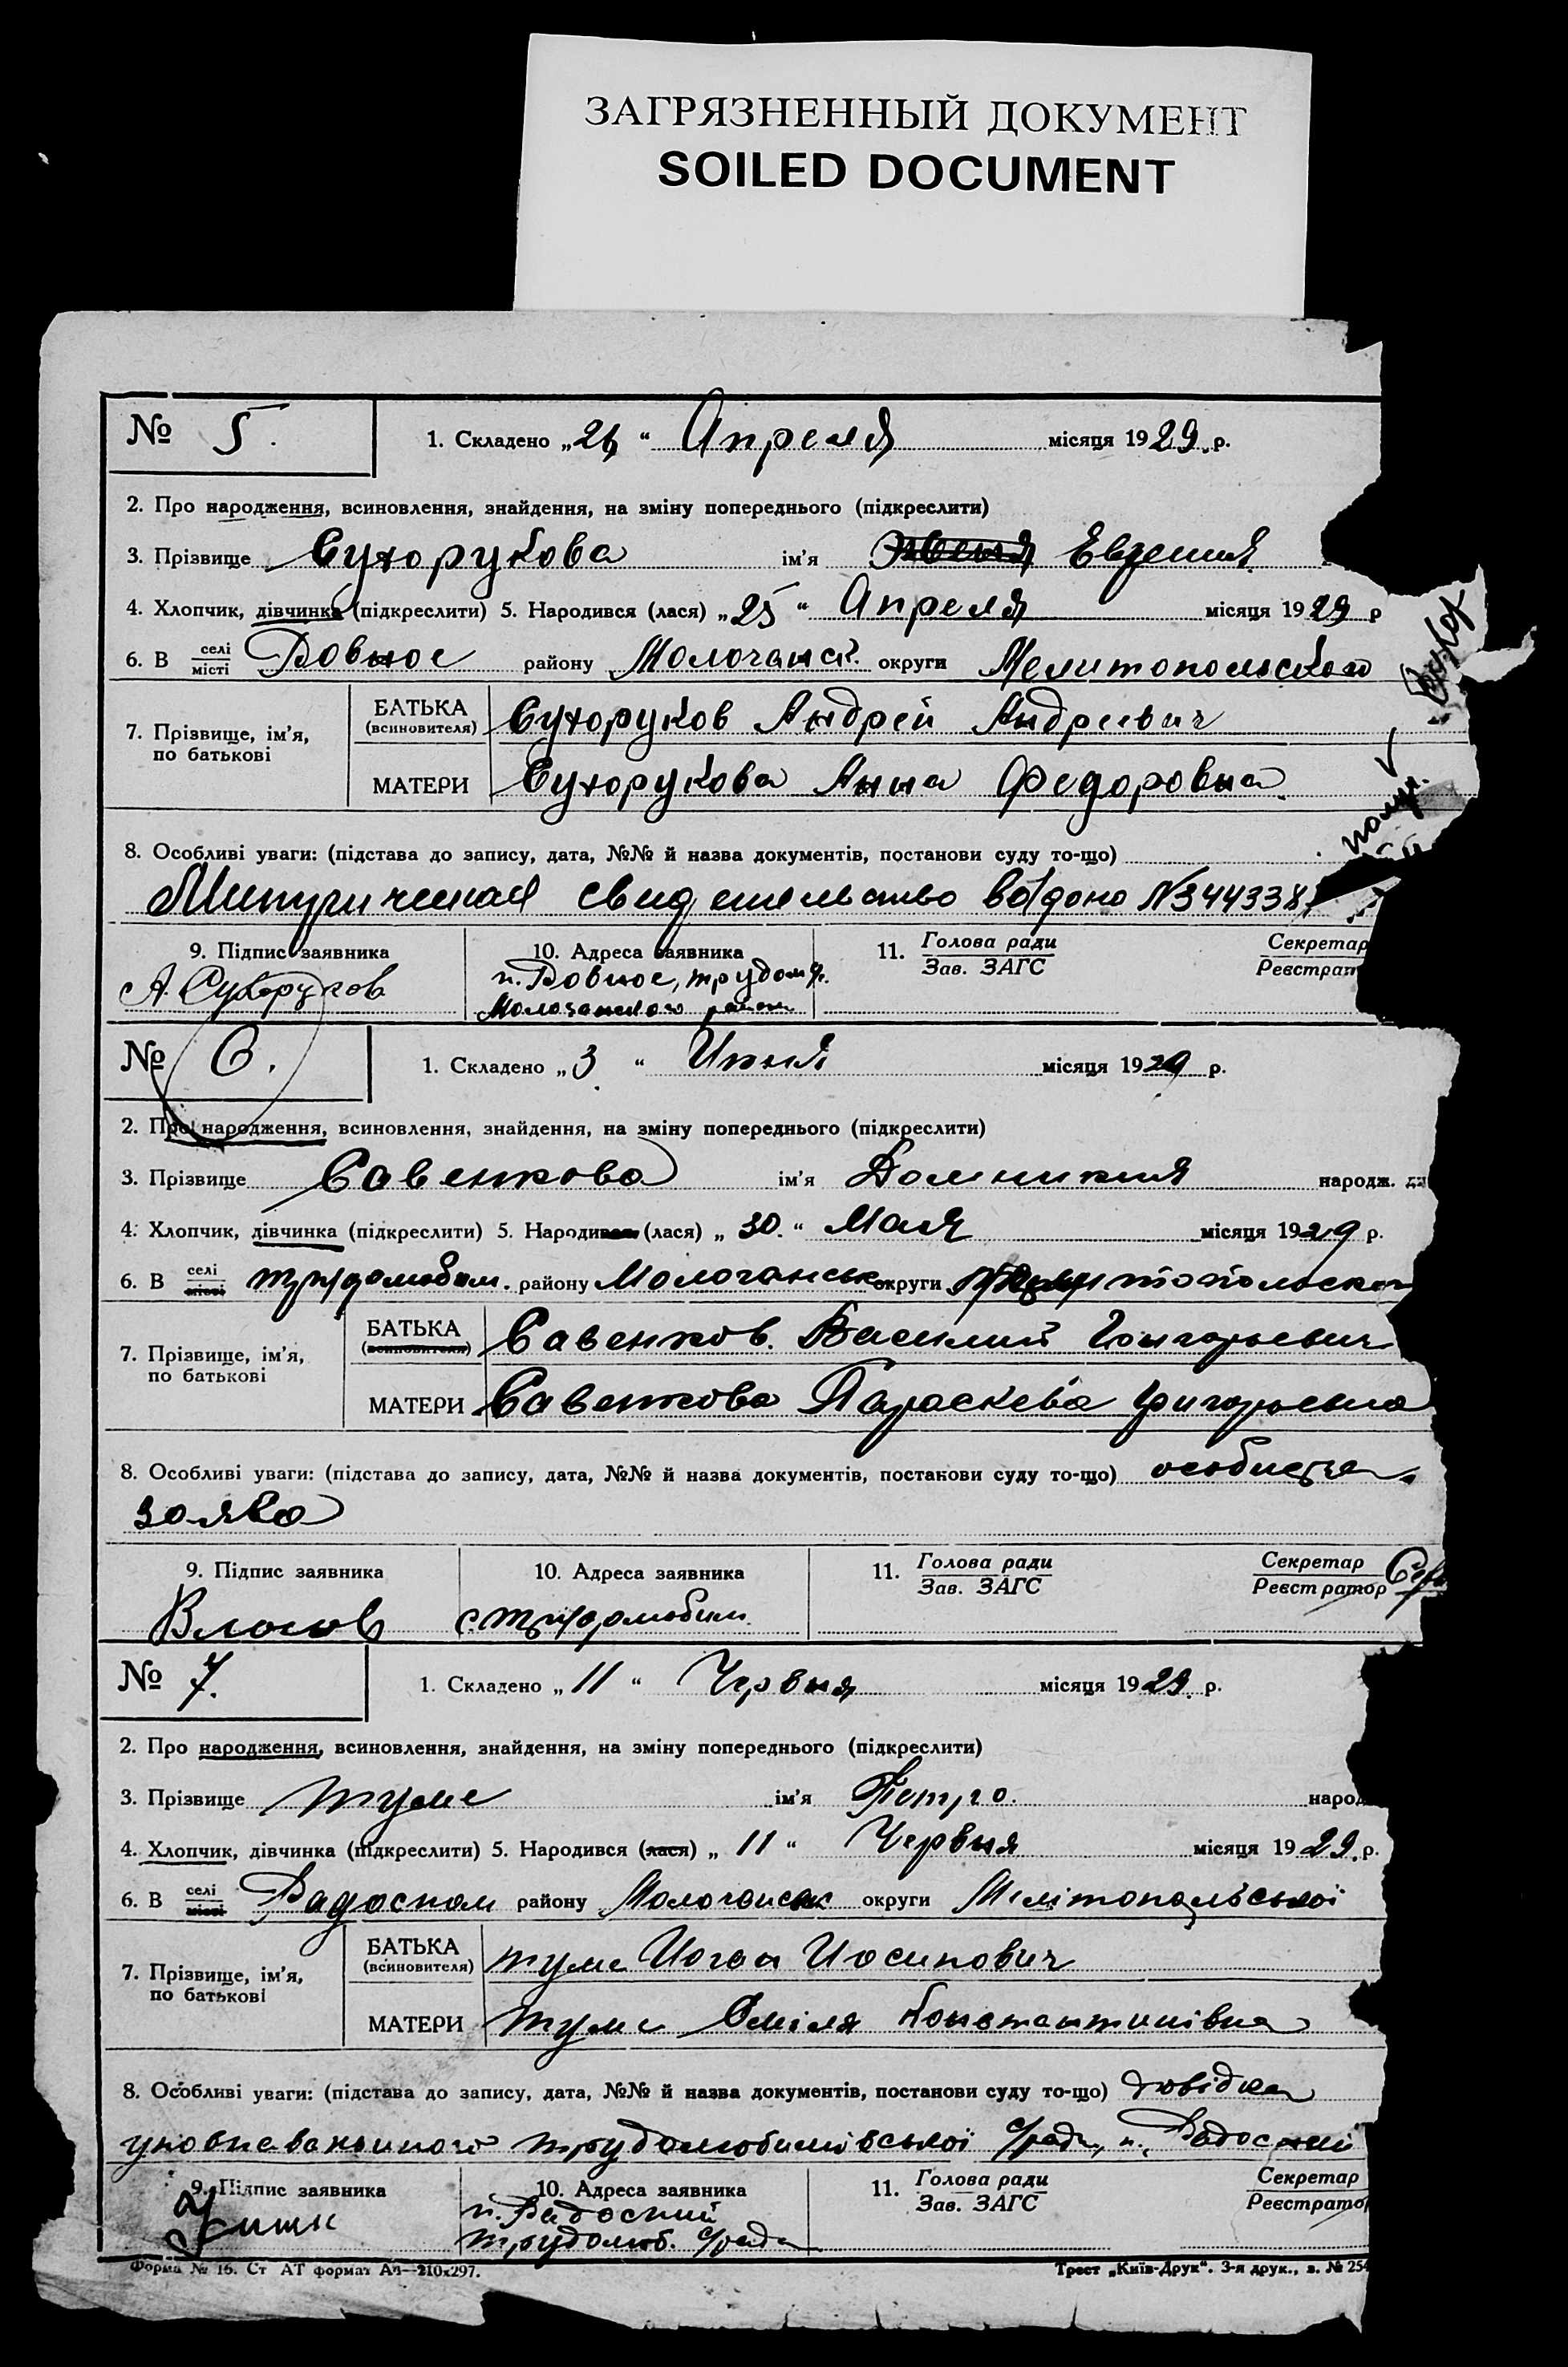 ЗАГРЯЗНЕННЫЙ ДОКУМЕНТ
SOILED DOCUMENT
№ 5. 1. Складено „26“ Апреля місяця 1929. р.
2. Про народження, всиновлення, знайдення, на зміну попереднього (підкреслити)
3. Прізвище Сухорукова ім'я Евгения
4. Хлопчик, дівчинка (підкреслити) 5. Народився (лася) „25“ Апреля місяця 1929 р
6. В селі місті Ровное району Молочанск. округи Мелитопольского
7. Прізвище, ім'я, по батькові
БАТЬКА (всиновителя) Сухоруков Андрей Андреевич
МАТЕРИ Сухорукова Анна Федоровна
8. Особливі уваги: (підстава до запису, дата, №№ й назва документів, постанови суду то-що)
свидетельство №344338
9. Підпис заявника 10. Адреса заявника 11. Голова ради Зав. ЗАГС Секретар Реєстрат
А. Сухоруков п. Ровное,
Молочанского района
№ 6. 1. Складено „3“ Июня місяця 1929 р.
2. Про народження, всиновлення, знайдення, на зміну попереднього (підкреслити)
3. Прізвище Савенкова ім'я Домникия народж.
4. Хлопчик, дівчинка (підкреслити) 5. Народився (лася) „30.“ Мая місяця 1929 р.
6. В селі місті трудолюбим. району Молочанськ округи
7. Прізвище, ім'я, по батькові
БАТЬКА (всиновителя) Савенков Василий Григорьевич
МАТЕРИ Савенкова Параскева Григорьевна
8. Особливі уваги: (підстава до запису, дата, №№ й назва документів, постанови суду то-що) особиста
заява
9. Підпис заявника 10. Адреса заявника 11. Голова ради Зав. ЗАГС Секретар Реєстратор
с. трудолюбим.
№ 7. 1. Складено „11“ Червня місяця 1929. р.
2. Про народження, всиновлення, знайдення, на зміну попереднього (підкреслити)
3. Прізвище туме ім'я Петро. народ
4. Хлопчик, дівчинка (підкреслити) 5. Народився (лася) „11“ Червня місяця 1929. р.
6. В селі місті Радосном району Молочанськ округи Мелітопольської
7. Прізвище, ім'я, по батькові
БАТЬКА (всиновителя) туме Иоган Иосипович
МАТЕРИ туме Еміля Константинівна
8. Особливі уваги: (підстава до запису, дата, №№ й назва документів, постанови суду то-що) довідка
трудолюбимівської с/ради, п. Радосний
9. Підпис заявника 10. Адреса заявника 11. Голова ради Зав. ЗАГС Секретар Реєстратор
п. Радосний
трудолюб. с/рада
Форма № 16. Ст АТ формат А4—210х297. Трест „Київ-Друк“. 3-я друк., з. № 254